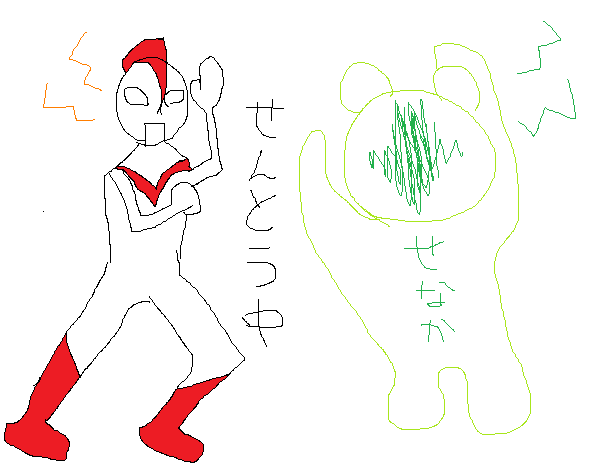 せんとうや
せなか